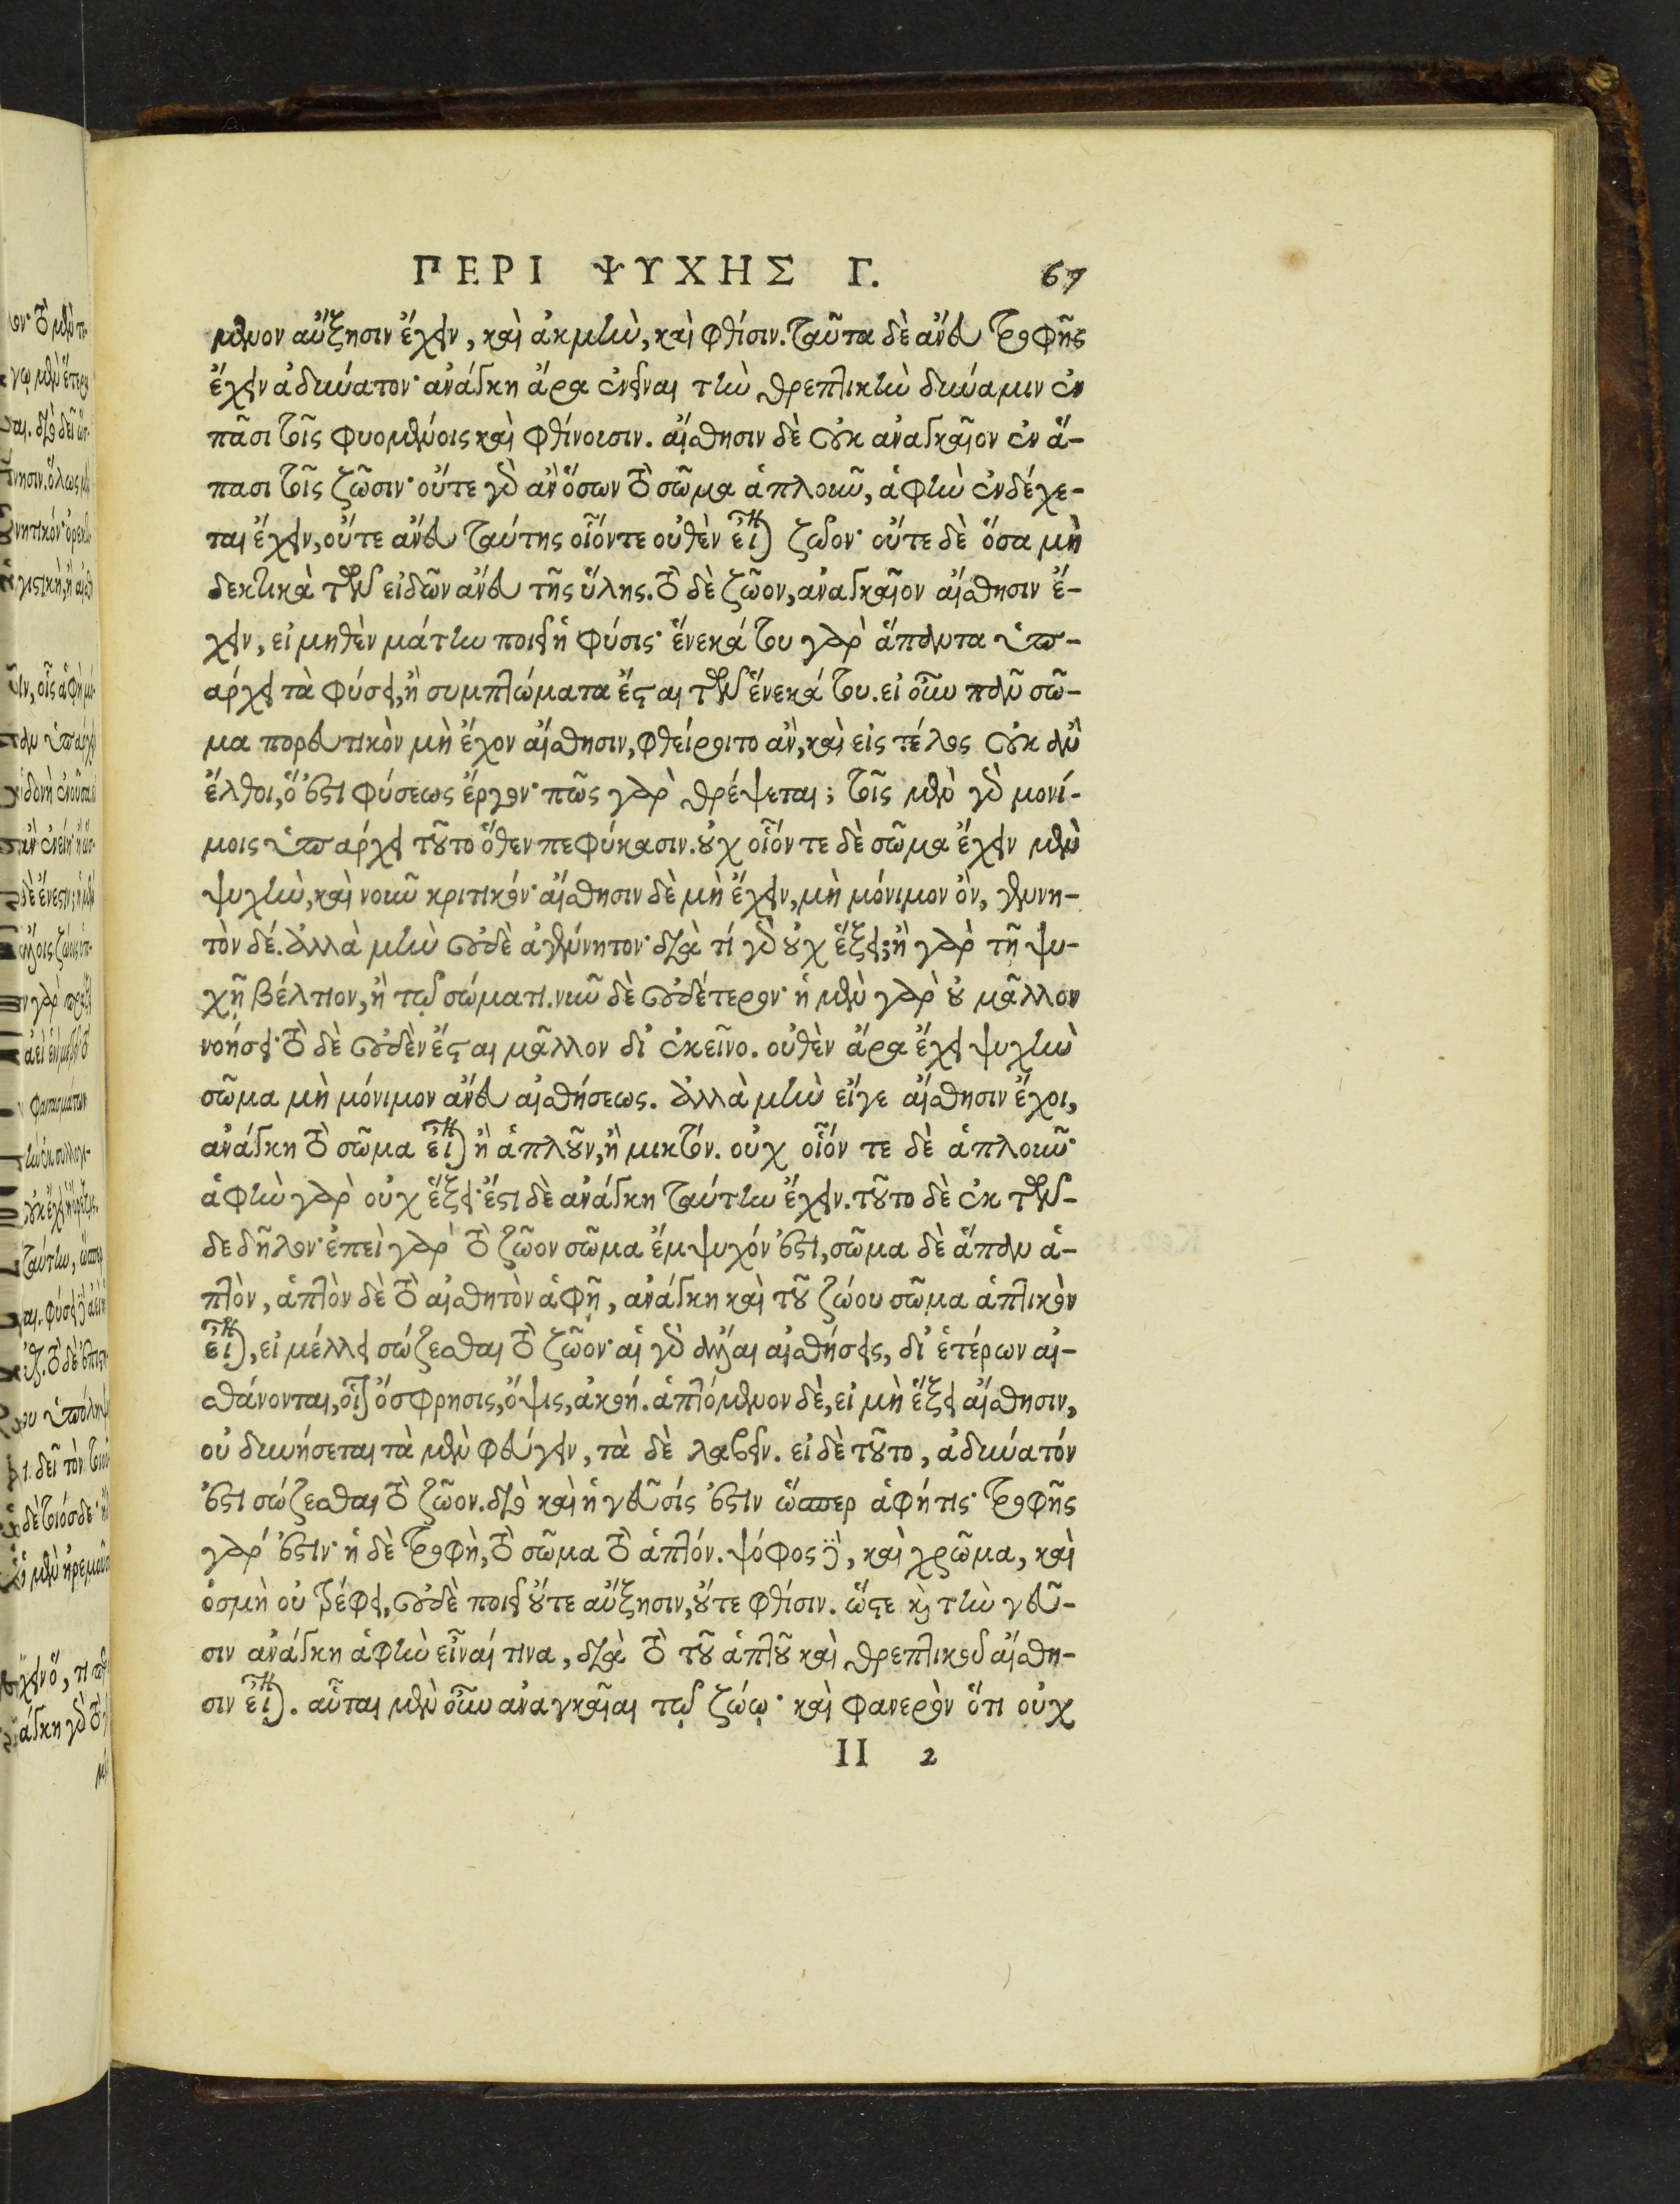 ΠΕΡΙ ΨΥΧΗΣ Γ. 67
μενον αὔξησιν ἔχειν, καὶ ἀκμὴν, καὶ φθίσιν. ταῦτα δὲ ἄνευ τροφῆς
ἔχειν ἀδύνατον· ἀνάγκη ἄρα ἐνεῖναι τὴν θρεπτικὴν δύναμιν ἐν
πᾶσι τοῖς φυομένοις καὶ φθίνουσιν. αἴσθησιν δὲ οὐκ ἀναγκαῖον ἐν ἅ-
πασι τοῖς ζῶσιν· οὔτε γὰρ ἂν ὅσων τὸ σῶμα ἁπλοῦν, ἁφὴν ἐνδέχε-
ται ἔχειν, οὔτε ἄνευ ταύτης οἷόντε οὐθὲν εἶναι ζῶον· οὔτε δὲ ὅσα μὴ
δεκτικὰ τῶν εἰδῶν ἄνευ τῆς ὕλης. τὸ δὲ ζῶον, ἀναγκαῖον αἴσθησιν ἔ-
χειν, εἰ μηθὲν μάτην ποιεῖ ἡ φύσις· ἕνεκά του γὰρ ἅπαντα ὑπ-
άρχει τὰ φύσει, ἢ συμπτώματα ἔσται τῶν ἕνεκά του. εἰ οὖν πᾶν σῶ-
μα πορευτικὸν μὴ ἔχον αἴσθησιν, φθείροιτο ἂν, καὶ εἰς τέλος οὐκ ἂν
ἔλθοι, ὅ ἐστι φύσεως ἔργον· πῶς γὰρ θρέψεται; τοῖς μὲν γὰρ μονί-
μοις ὑπάρχει τοῦτο ὅθεν πεφύκασιν. οὐχ οἷόν τε δὲ σῶμα ἔχειν μὲν
ψυχὴν, καὶ νοῦν κριτικόν· αἴσθησιν δὲ μὴ ἔχειν, μὴ μόνιμον ὂν, γεννη-
τὸν δέ. ἀλλὰ μὴν οὐδὲ ἀγέννητον· διὰ τί γὰρ οὐχ ἕξει; ἢ γὰρ τῇ ψυ-
χῇ βέλτιον, ἢ τῷ σώματι. νῦν δὲ οὐδέτερον· ἡ μὲν γὰρ οὐ μᾶλλον
νοήσει· τὸ δὲ οὐδὲν ἔσται μᾶλλον δι' ἐκεῖνο. οὐθὲν ἄρα ἔχει ψυχὴν
σῶμα μὴ μόνιμον ἄνευ αἰσθήσεως. ἀλλὰ μὴν εἴγε αἴσθησιν ἔχοι,
ἀνάγκη τὸ σῶμα εἶναι ἢ ἁπλοῦν, ἢ μικτόν. οὐχ οἷόν τε δὲ ἁπλοῦν·
ἁφὴν γὰρ οὐχ ἕξει· ἔστι δὲ ἀνάγκη ταύτην ἔχειν. τοῦτο δὲ ἐκ τῶν-
δε δῆλον· ἐπεὶ γὰρ τὸ ζῶον σῶμα ἔμψυχόν ἐστι, σῶμα δὲ ἅπαν ἁ-
πτὸν, ἁπτὸν δὲ τὸ αἰσθητὸν ἁφῇ, ἀνάγκη καὶ τοῦ ζώου σῶμα ἁπτικὸν
εἶναι, εἰ μέλλει σώζεσθαι τὸ ζῶον· αἱ γὰρ ἄλλαι αἰσθήσεις, δι' ἑτέρων αἰ-
σθάνονται, οἷον ὄσφρησις, ὄψις, ἀκοή. ἁπτόμενον δὲ, εἰ μὴ ἕξει αἴσθησιν,
οὐ δυνήσεται τὰ μὲν φεύγειν, τὰ δὲ λαβεῖν. εἰ δὲ τοῦτο, ἀδύνατόν
ἐστι σώζεσθαι τὸ ζῶον. διὸ καὶ ἡ γεῦσίς ἐστιν ὥσπερ ἁφή τις· τροφῆς
γάρ ἐστιν· ἡ δὲ τροφὴ, τὸ σῶμα τὸ ἁπτόν. ψόφος δὲ, καὶ χρῶμα, καὶ
ὀσμὴ οὐ τρέφει, οὐδὲ ποιεῖ οὔτε αὔξησιν, οὔτε φθίσιν. ὥστε καὶ τὴν γεῦ-
σιν ἀνάγκη ἁφὴν εἶναί τινα, διὰ τὸ τοῦ ἁπτοῦ καὶ θρεπτικοῦ αἴσθη-
σιν εἶναι. αὗται μὲν οὖν ἀναγκαῖαι τῷ ζώῳ· καὶ φανερὸν ὅτι οὐχ
II 2